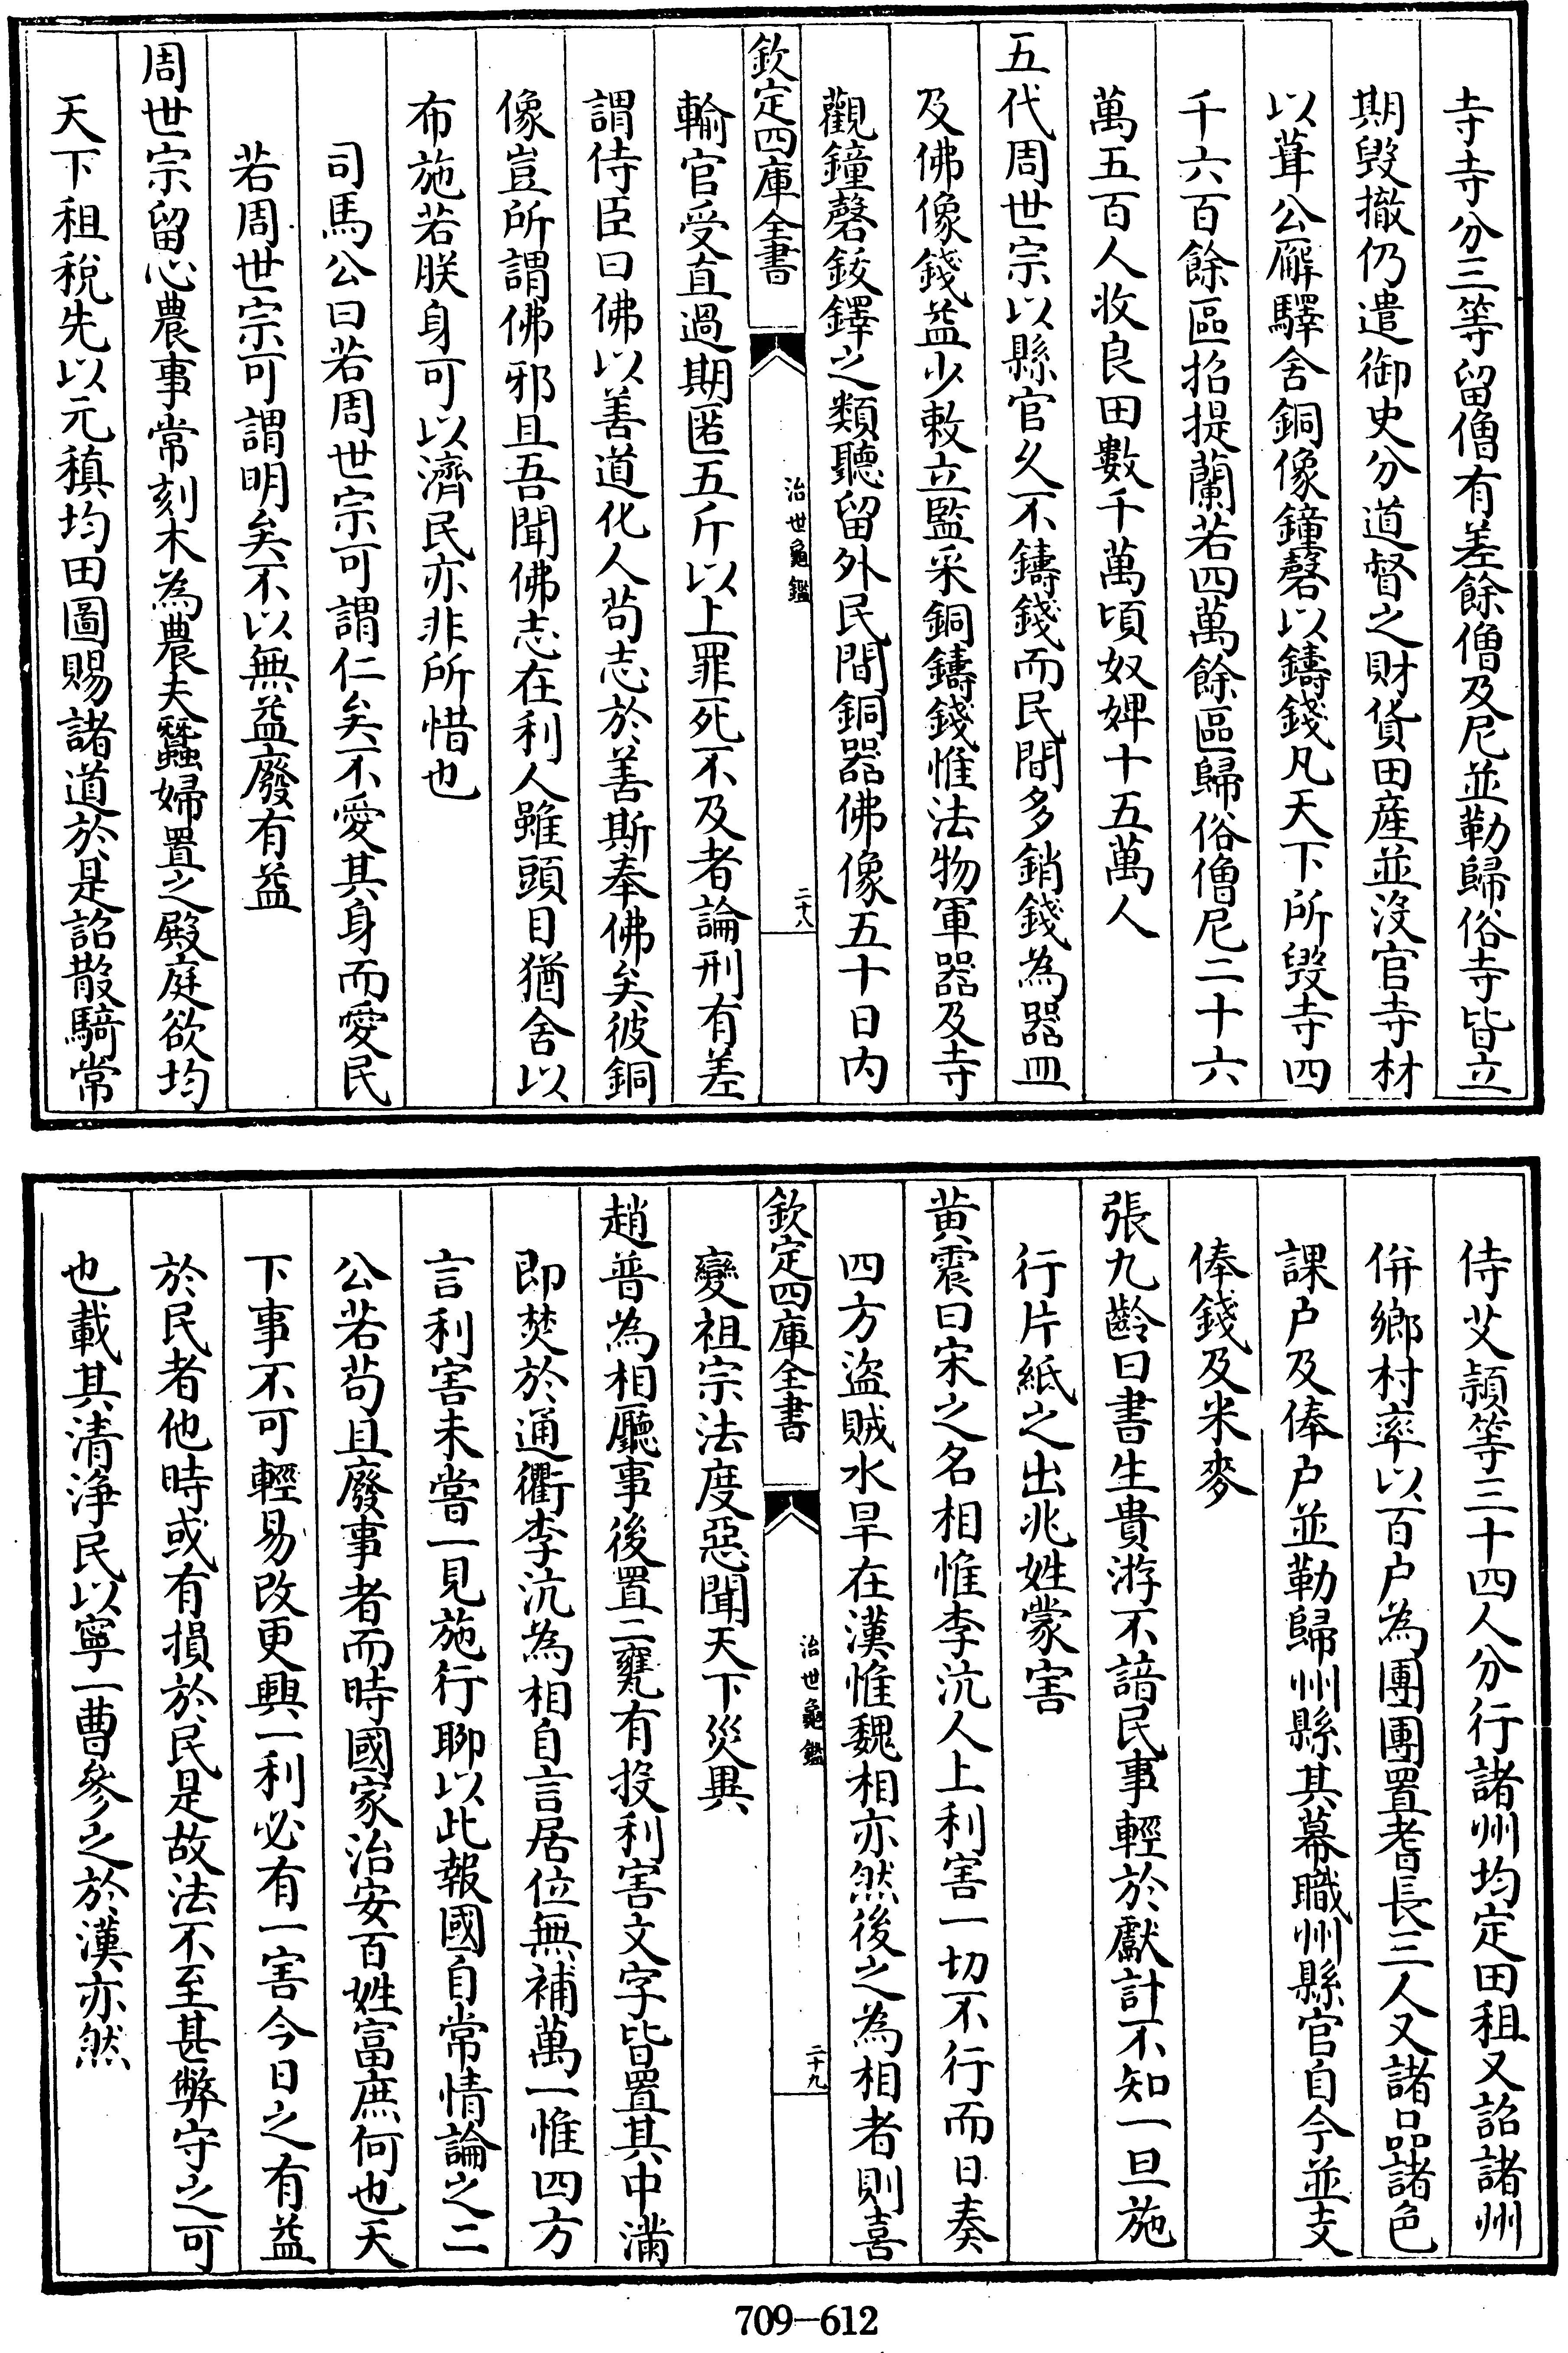 寺寺分三等留僧有差餘僧及尼並勒歸俗寺皆立
期毀撤仍遣御史分道督之財貨田産並沒官寺材
以葺公廨驛舍銅像鐘磬以鑄錢凡天下所毀寺四
千六百餘區招提蘭若四萬餘區歸俗僧尼二十六
萬五百人收良田數千萬頃奴婢十五萬人
五代周世宗以縣官久不鑄錢而民間多銷錢為器皿
及佛像錢益少敕立監采銅鑄錢惟法物軍器及寺
觀鐘磬鈸鐸之類聽留外民間銅器佛像五十日內
欽定四庫全書
治世龜鑑
二十八
輸官受直過期匿五斤以上罪死不及者論刑有差
謂侍臣曰佛以善道化人苟志於善斯奉佛矣彼銅
像豈所謂佛邪且吾聞佛志在利人雖頭目猶舍以
布施若朕身可以濟民亦非所惜也
司馬公曰若周世宗可謂仁矣不愛其身而愛民
若周世宗可謂明矣不以無益廢有益
周世宗留心農事常刻木為農夫蠶婦置之殿庭欲均
天下租稅先以元稹均田圖賜諸道於是詔散騎常
侍艾頴等三十四人分行諸州均定田租又詔諸州
併鄉村率以百户為團團置耆長三人又諸品諸色
課户及俸户並勒歸州縣其幕職州縣官自今並支
俸錢及米麥
張九齡曰書生貴游不諳民事輕於獻計不知一旦施
行片紙之出兆姓蒙害
黄震曰宋之名相惟李沆人上利害一切不行而日奏
四方盜賊水旱在漢惟魏相亦然後之為相者則喜
欽定四庫全書
治世龜鑑
二十九
變祖宗法度惡聞天下災異
趙普為相廳事後置二甕有投利害文字皆置其中滿
即焚於通衢李沆為相自言居位無補萬一惟四方
言利害未嘗一見施行聊以此報國自常情論之二
公若苟且廢事者而時國家治安百姓富庶何也天
下事不可輕易改更興一利必有一害今日之有益
於民者他時或有損於民是故法不至甚弊守之可
也載其清淨民以寧一曹參之於漢亦然
709-612